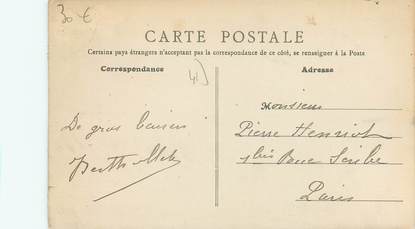 30 €
CARTE POSTALE
Certains pays étrangers n'acceptant pas la correspondance de ce côté, se renseigner à la Poste
Correspondance
Adresse
41)
De gros baisers
Monsieur
Pierre Henriot
1bis Rue Scribe
Paris